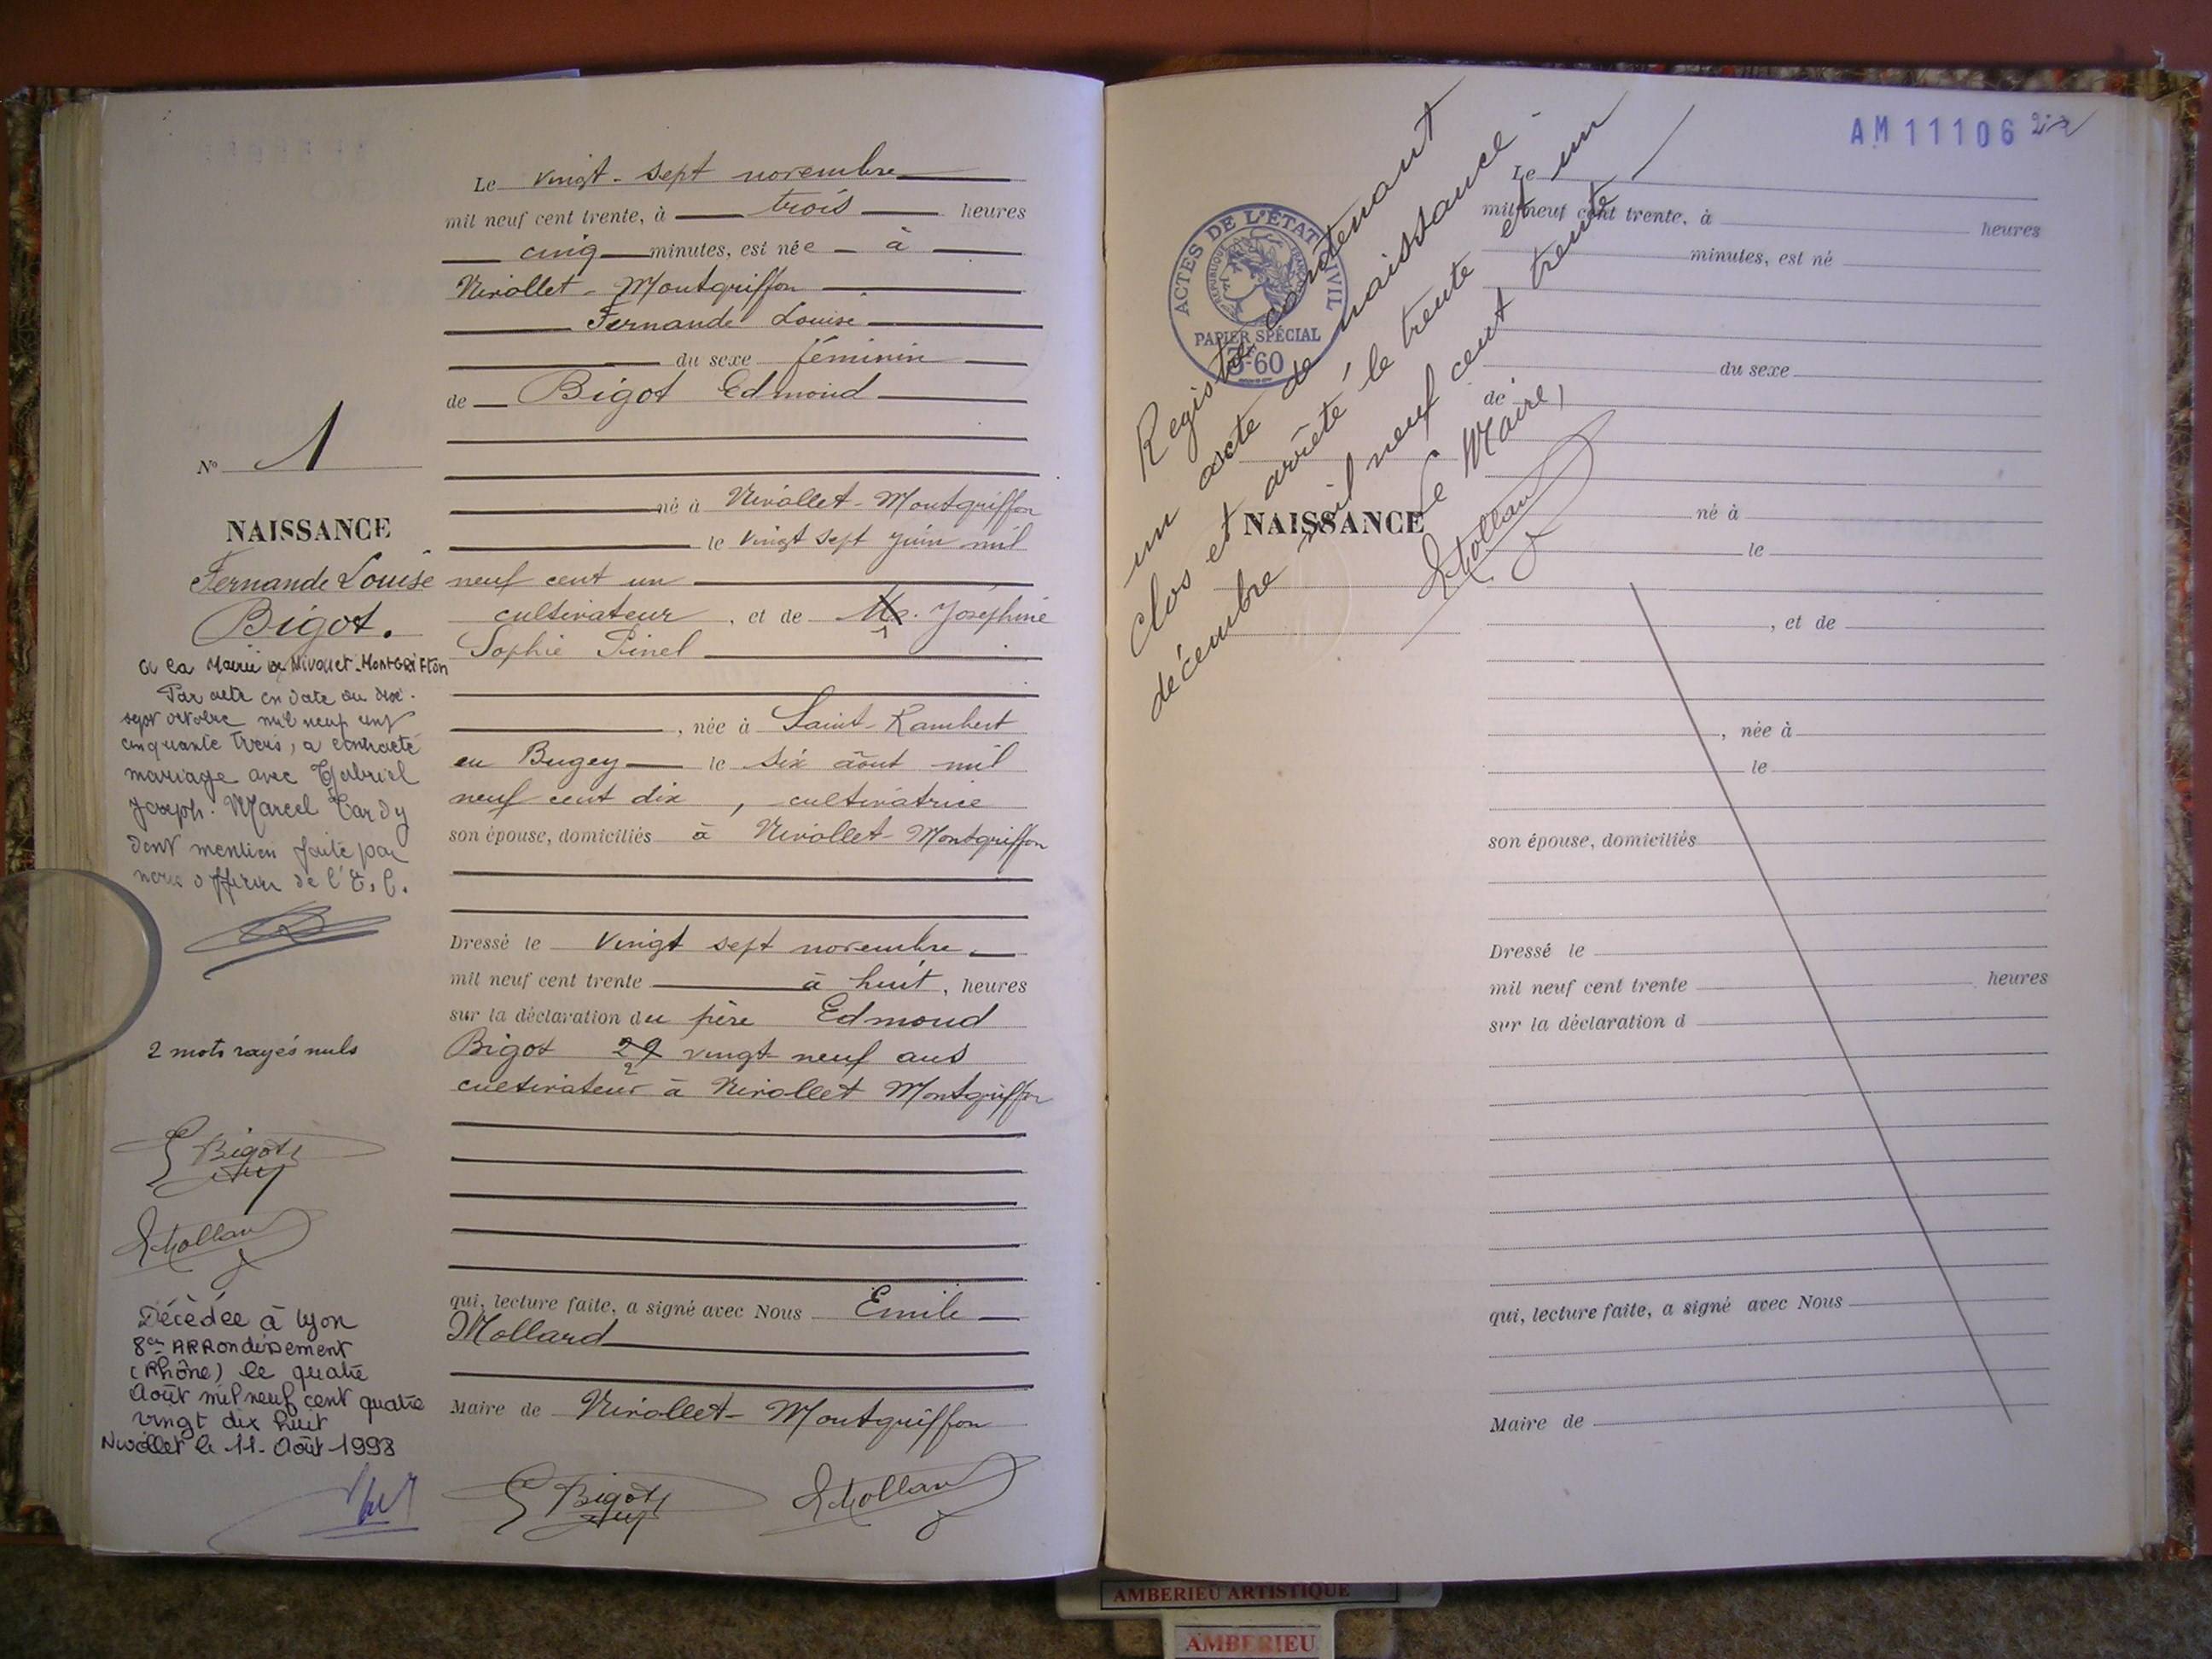 Le vingt-sept novembre
mil neuf cent trente, à trois heures
cinq minutes, est née à
Nivollet-Montgriffon
Fernande Louise
du sexe féminin
de Bigot Edmond
né à Nivollet-Montgriffon
le vingt sept juin mil
neuf cent un
cultivateur, et de Joséphine
Sophie Pinel
, née à Saint-Rambert
en Bugey le six août mil
neuf cent dix, cultivatrice
son épouse, domiciliés à Nivollet-Montgriffon
Dressé le vingt sept novembre
mil neuf cent trente à huit, heures
sur la déclaration du père Edmond
Bigot 29 vingt neuf ans
cultivateur à Nivollet Montgriffon
qui, lecture faite, a signé avec Nous Emile
Mollard
Maire de Nivollet-Montgriffon
E Bigot
E Mollard
N° 1
NAISSANCE
Fernande Louise
Bigot.
A la Mairie de Nivollet-Montgriffon
Par acte en date du dix-
sept octobre mil neuf cent
cinquante trois, a contracté
mariage avec Gabriel
Joseph-Marcel Tardy
dont mention faite par
nous officier de l'E.C.
2 mots rayés nuls
E Bigot
E Mollard
Décédée à Lyon
8em ARRondissement
(Rhône) le quatre
Août mil neuf cent quatre
vingt dix huit
Nivollet le 11-Août-1998
AM11106
Registre contenant
un acte de naissance -
clos et arrêté le trente et un
décembre mil neuf cent trente
Le Maire,
E Mollard
ACTES DE L'ÉTAT CIVIL
RÉPUBLIQUE FRANÇAISE
PAPIER SPÉCIAL
3F60
Le
mil neuf cent trente, à heures
minutes, est né
du sexe
de
NAISSANCE
né à
le
, et de
, née à
le
son épouse, domiciliés
Dressé le
mil neuf cent trente heures
sur la déclaration d
qui, lecture faite, a signé avec Nous
Maire de
AMBERIEU ARTISTIQUE
AMBERIEU